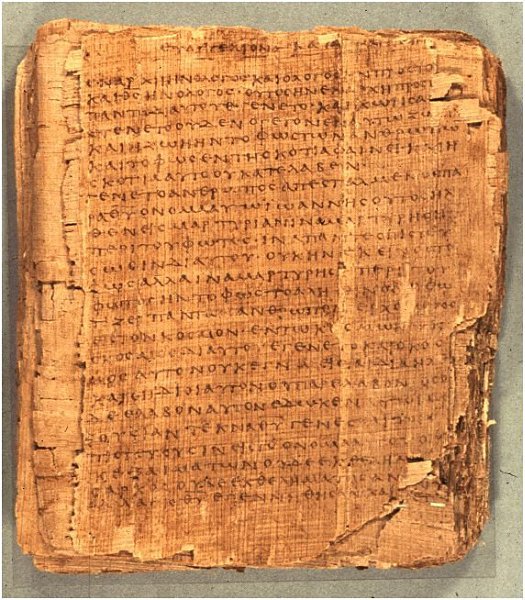 ΕΥΑΓΓΕΛΙΟΝ ΚΑΤΑ
ΕΝ ΑΡΧΗ ΗΝ Ο ΛΟΓΟΣ ΚΑΙ Ο ΛΟΓΟΣ ΗΝ ΠΡΟΣ ΤΟ
ΚΑΙ ΘΣ ΗΝ Ο ΛΟΓΟΣ ΟΥΤΟΣ ΗΝ ΕΝ ΑΡΧΗ ΠΡΟΣ
ΠΑΝΤΑ ΔΙ ΑΥΤΟΥ ΕΓΕΝΕΤΟ ΚΑΙ ΧΩΡΙΣ Α
ΕΓΕΝΕΤΟ ΟΥΔΕΝ Ο ΓΕΓΟΝΕΝ ΕΝ ΑΥΤΩ ΖΩ
ΚΑΙ Η ΖΩΗ ΗΝ ΤΟ ΦΩΣ ΤΩΝ ΑΝΘΡΩΠΩ
ΚΑΙ ΤΟ ΦΩΣ ΕΝ ΤΗ ΣΚΟΤΙΑ ΦΑΙΝΕΙ ΚΑΙ Η
ΣΚΟΤΙΑ ΑΥΤΟ ΟΥ ΚΑΤΕΛΑΒΕΝ
ΕΓΕΝΕΤΟ ΑΝΘΡΩΠΟΣ ΑΠΕΣΤΑΛΜΕΝΟΣ ΠΑ
ΡΑ ΘΥ ΟΝΟΜΑ ΑΥΤΩ ΙΩΑΝΝΗΣ ΟΥΤΟΣ ΗΛ
ΘΕΝ ΕΙΣ ΜΑΡΤΥΡΙΑΝ ΙΝΑ ΜΑΡΤΥΡΗΣΗ
ΠΕΡΙ ΤΟΥ ΦΩΤΟΣ ΙΝΑ ΠΑΝΤΕΣ ΠΙΣΤΕΥ
ΣΩΣΙΝ ΔΙ ΑΥΤΟΥ ΟΥΚ ΗΝ ΕΚΕΙΝΟΣ ΤΟ Φ
ΩΣ ΑΛΛΑ ΙΝΑ ΜΑΡΤΥΡΗΣΗ ΠΕΡΙ ΤΟΥ
ΦΩΤΟΣ ΗΝ ΤΟ ΦΩΣ ΤΟ ΑΛΗΘΙΝΟΝ Ο ΦΩ
ΤΙΖΕΙ ΠΑΝΤΑ ΑΝΘΡΩΠΟΝ
ΕΙΣ ΤΟΝ ΚΟΣΜΟΝ ΕΝ ΤΩ ΚΟΣΜΩ ΗΝ
ΚΟΣΜΟΣ ΔΙ ΑΥΤΟΥ ΕΓΕΝΕΤΟ ΚΑΙ Ο ΚΟΣ
ΜΟΣ ΑΥΤΟΝ ΟΥΚ ΕΓΝΩ ΕΙΣ ΤΑ ΙΔΙΑ ΗΛ
ΚΑΙ ΟΙ ΙΔΙΟΙ ΑΥΤΟΝ ΟΥ ΠΑΡΕΛΑΒΟΝ ΟΣΟ
ΔΕ ΕΛΑΒΟΝ ΑΥΤΟΝ ΕΔΩΚΕΝ ΑΥΤΟΙΣ
ΟΥΣΙΑΝ ΤΕΚΝΑ ΘΥ ΓΕΝΕΣΘΑΙ
ΠΙΣΤΕΥΟΥΣΙΝ ΕΙΣ ΤΟ ΟΝΟΜΑ ΑΥΤΟΥ ΟΙ
ΟΥΚ ΕΞ ΑΙΜΑΤΩΝ ΟΥΔΕ ΕΚ ΘΕΛΗΜΑ
ΣΑΡΚΟΣ ΟΥΔΕ ΕΚ ΘΕΛΗΜΑΤΟΣ ΑΝ
ΕΚ ΘΥ ΕΓΕΝΝΗΘΗΣΑΝ ΚΑΙ